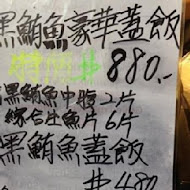 黑鮪魚豪華蓋飯
$880.-
黑鮪魚中腹2片
綜合生魚片6片
黑鮪魚蓋飯
$480